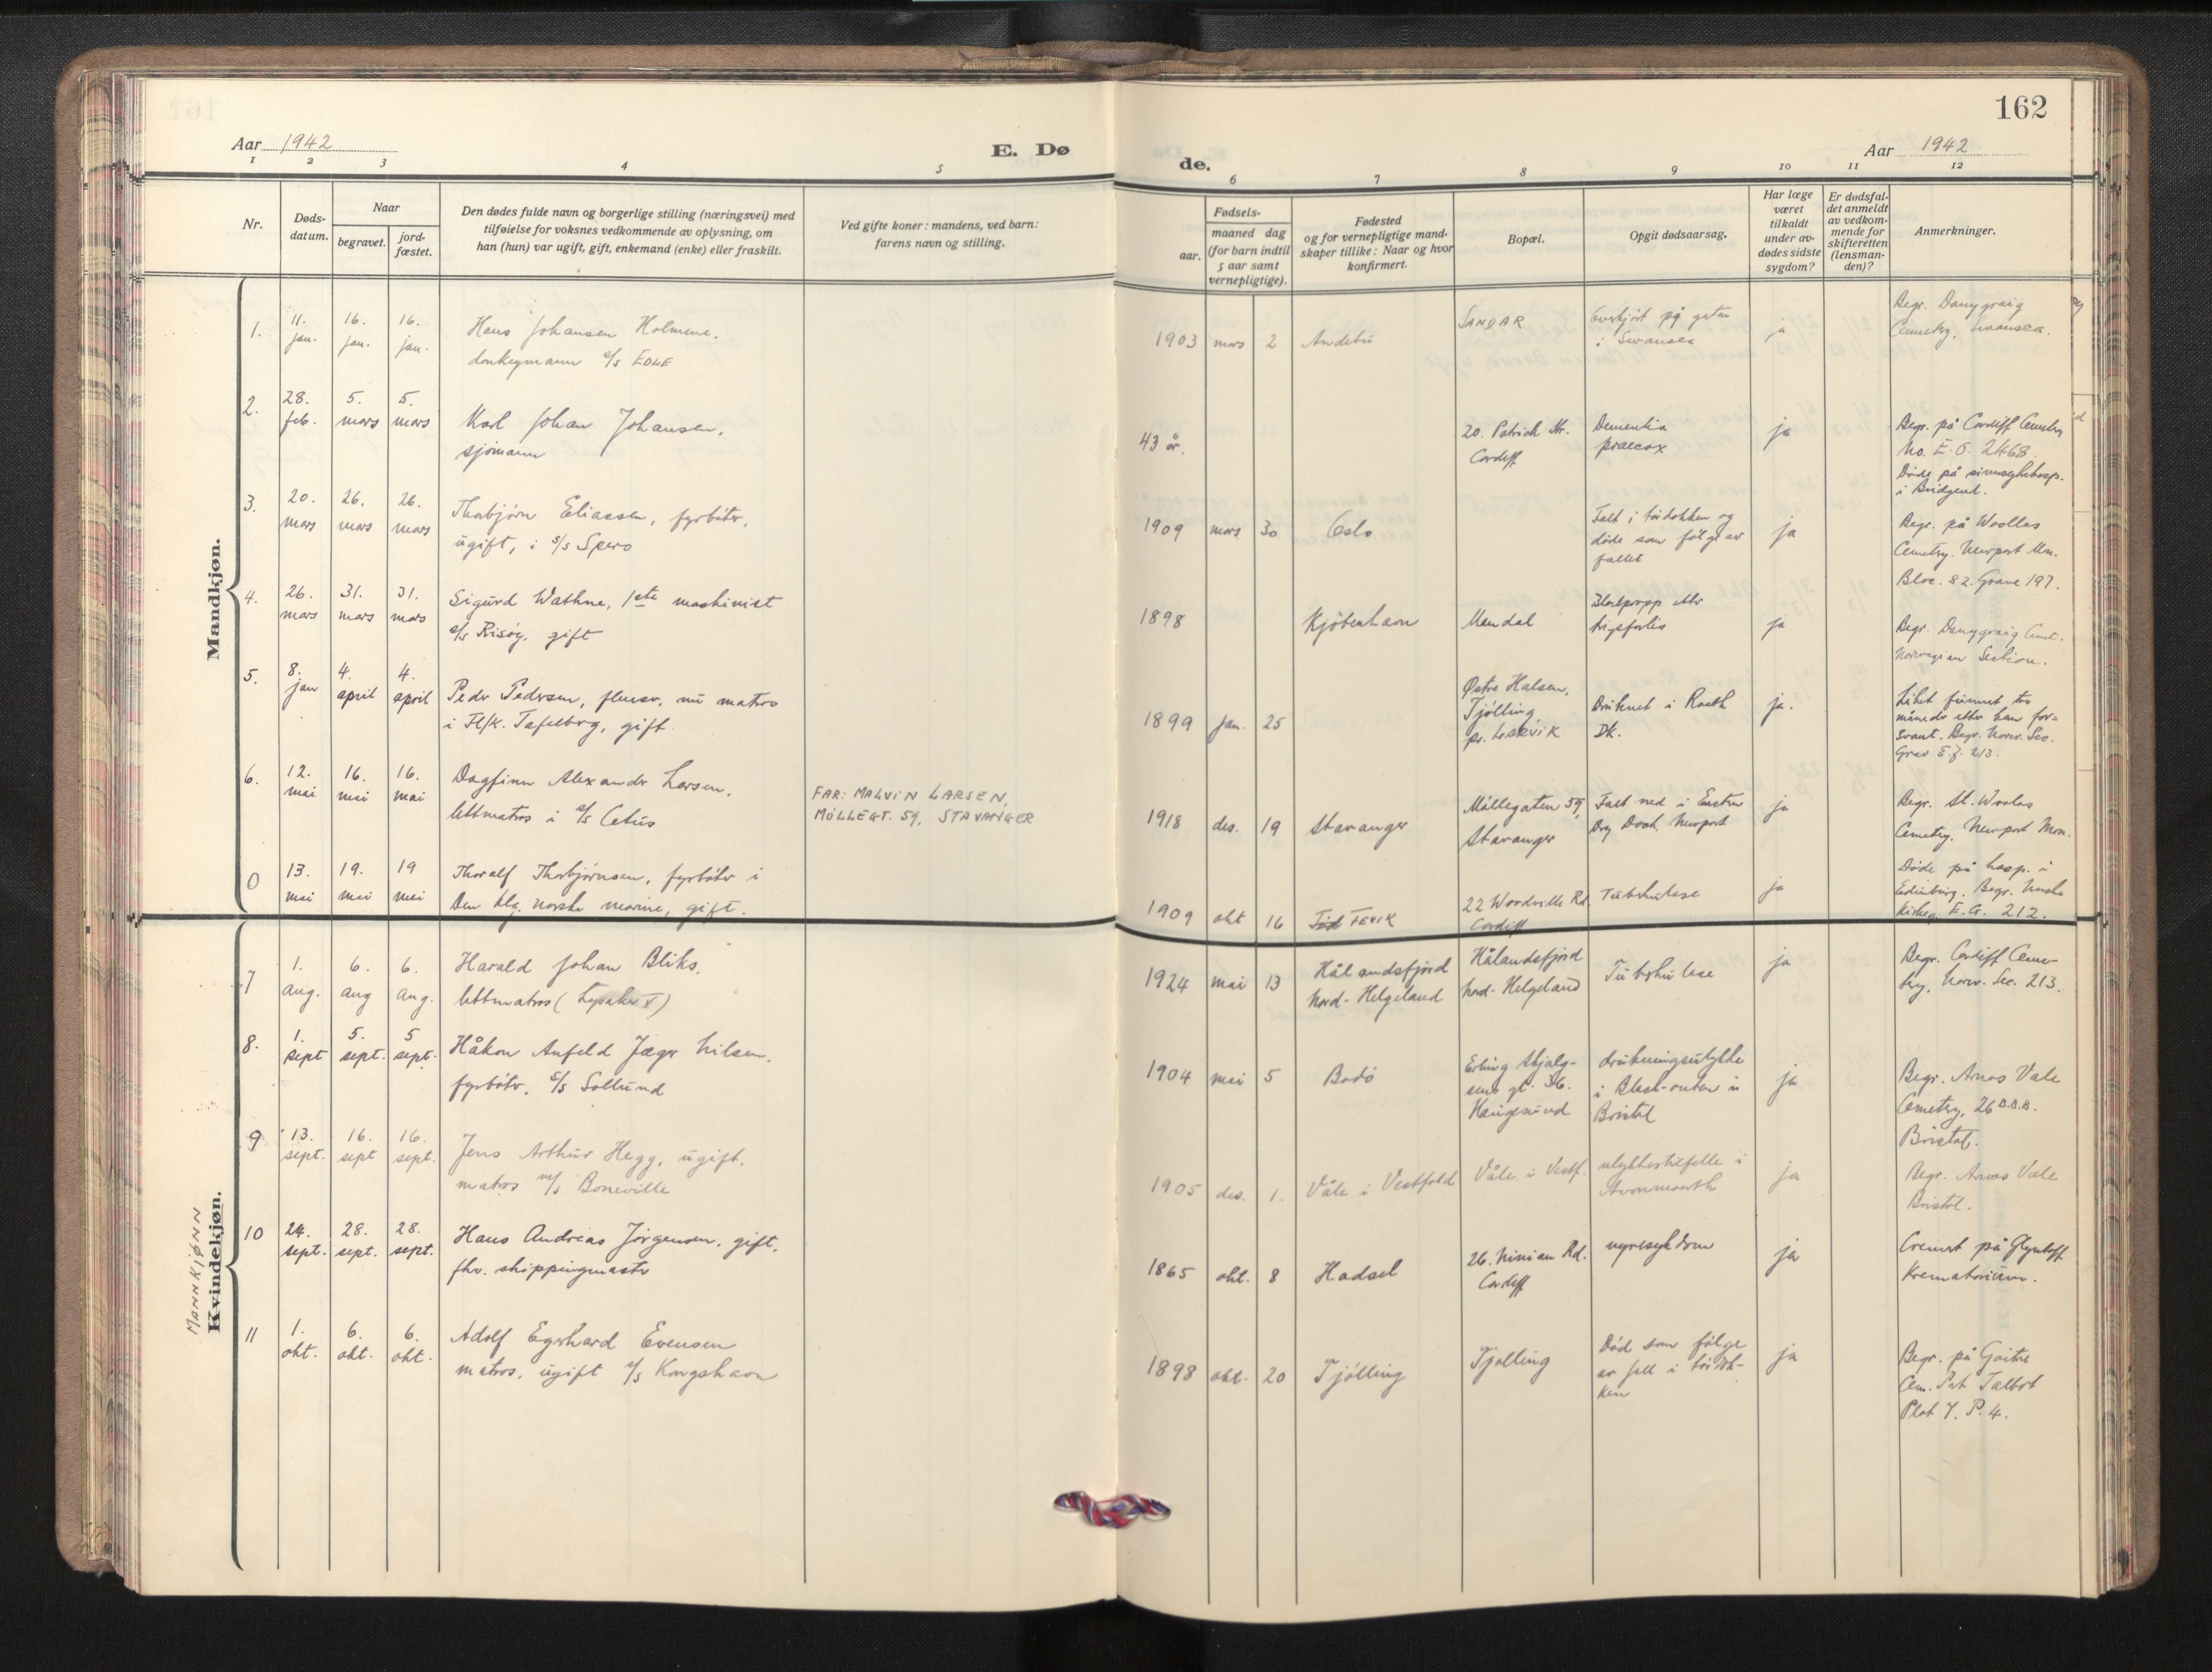 162
Aar 1942
E. Dø
de.
Aar 1942
1 2 3 4 5 6 7 8 9 10 11 12
Nr.
Døds-
datum.
Naar
begravet.
jord-
fæstet.
Den dødes fulde navn og borgerlige stilling (næringsvei) med
tilføielse for voksnes vedkommende av oplysning, om
han (hun) var ugift, gift, enkemand (enke) eller fraskilt.
Ved gifte koner: mandens, ved barn:
farens navn og stilling.
Fødsels-
aar.
maaned dag
(for barn indtil
5 aar samt
vernepligtige).
Fødested
og for vernepligtige mand-
skaper tillike: Naar og hvor
konfirmert.
Bopæl.
Opgit dødsaarsag.
Har læge
været
tilkaldt
under av-
dødes sidste
sygdom?
Er dødsfal-
det anmeldt
av vedkom-
mende for
skifteretten
(lensman-
den)?
Anmerkninger.
Mandkjøn.
1.
11.
jan.
16.
jan.
16.
jan.
Hans Johansen Holmene.
donkeymann s/s EDLE
1903 mars 2 Andebu
SANDAR
Overkjört på gaten
i Swansea
ja
Begr. Danygraig
Cemetry, Swansea.
2.
28.
feb.
5.
mars
5.
mars
Karl Johan Johansen.
sjömann
43 år.
20. Patrick Str.
Cardiff
Dementia
praecox
ja
Begr. på Cardiff Cemetry
No. E.G. 2468.
Döde på sinnsykehosp.
i Bridgend.
3.
20.
mars
26.
mars
26.
mars
Thorbjørn Eliassen, fyrböter,
ugift, i s/s Spero
1909 mars 30 Oslo
Falt i tördokken og
döde som fölge av
fallet
ja
Begr. på Woollas
Cemetry. Newport Mn.
Bloc. 82. Grave 197.
4.
26.
mars
31.
mars
31.
mars
Sigurd Wathne, 1ste maskinist
s/s Risöy. gift
1898 Kjöbenhavn
Mandal
Blodpropp etter
krigsforlis
ja
Begr. Danygraig Cemt.
Norwegian Section.
5.
8.
jan
4.
april
4.
april
Peder Pedersen, flenser, nu matros
i Fl/k. Tafelberg, gift.
1899 jan. 25
Østre Halsen,
Tjölling
pr. Larvik
Druknet i Roath
Dk.
ja.
Liket funnet tre
måneder etter han for-
svant. Begr. Norw. Sec.
Grav E.J. 213.
6.
12.
mai
16.
mai
16.
mai
Dagfinn Alexander Larsen.
lettmatros i s/s Cetus
FAR: MALVIN LARSEN,
MÖLLEGT. 59, STAVANGER
1918 des. 19 Stavanger
Möllegaten 59,
Stavanger
Falt ned i Eastern
Dry Dock, Newport
ja
Begr. St. Woolas
Cemetry, Newport Mon.
0
13.
mai
19.
mai
19
mai
Thoralf Thorbjörnsen, fyrböter i
Den klg. norske marine, gift.
1909 okt 16 FEVIK
22 Woodville Rd.
Cardiff
Tuberkulose
ja
Döde på hosp. i
Edinburg. Begr.
E.G. 212.
MANNKJØNN
Kvindekjøn.
7
1.
aug.
6.
aug
6.
aug.
Harald Johan Bliks,
lettmatros (Lysaker V)
1924 mai 13 Hålandsfjord
Nord-Helgeland
Hålandsfjord
Nord-Helgeland
Tuberkulose
ja
Begr. Cardiff Ceme-
try, Norw. Sec. 213.
8.
1.
sept
5.
sept.
5
sept.
Håkon Anfeld Jæger Nilsen,
fyrböter, s/s Sollund
1904 mai 5 Bodö
Erling Skjalg-
sens gt. 36.
Haugesund
drukningsulykke
i Black-outen i
Bristol
ja
Begr. Arnos Vale
Cemetry, 26 B.B.B.
Bristol.
9
13.
sept.
16.
sept
16.
sept.
Jens Arthur Hegg, ugift,
matros m/s Boneville
1905 des. 1. Våle i Vestfold
Våle i Vestf.
ulykkestilfelle i
Avonmouth
ja
Begr. Arnos Vale
Bristol.
10
24.
sept.
28.
sept.
28.
sept.
Hans Andreas Jörgensen, gift,
fhv. shippingmaster
1865 okt. 8 Hadsel
26. Ninian Rd.
Cardiff
nyresykdom
ja
Cremert på Glyntaff
Krematorium.
11
1.
okt.
6.
okt.
6.
okt.
Adolf Egerhard Evensen
matros, ugift s/s Kongshavn
1898 okt. 20 Tjölling
Tjölling
Död som fölge
av fall i tördok-
ken
ja
Begr. på Goitre
Cem. Port Talbot
Plot Y. P. 4.